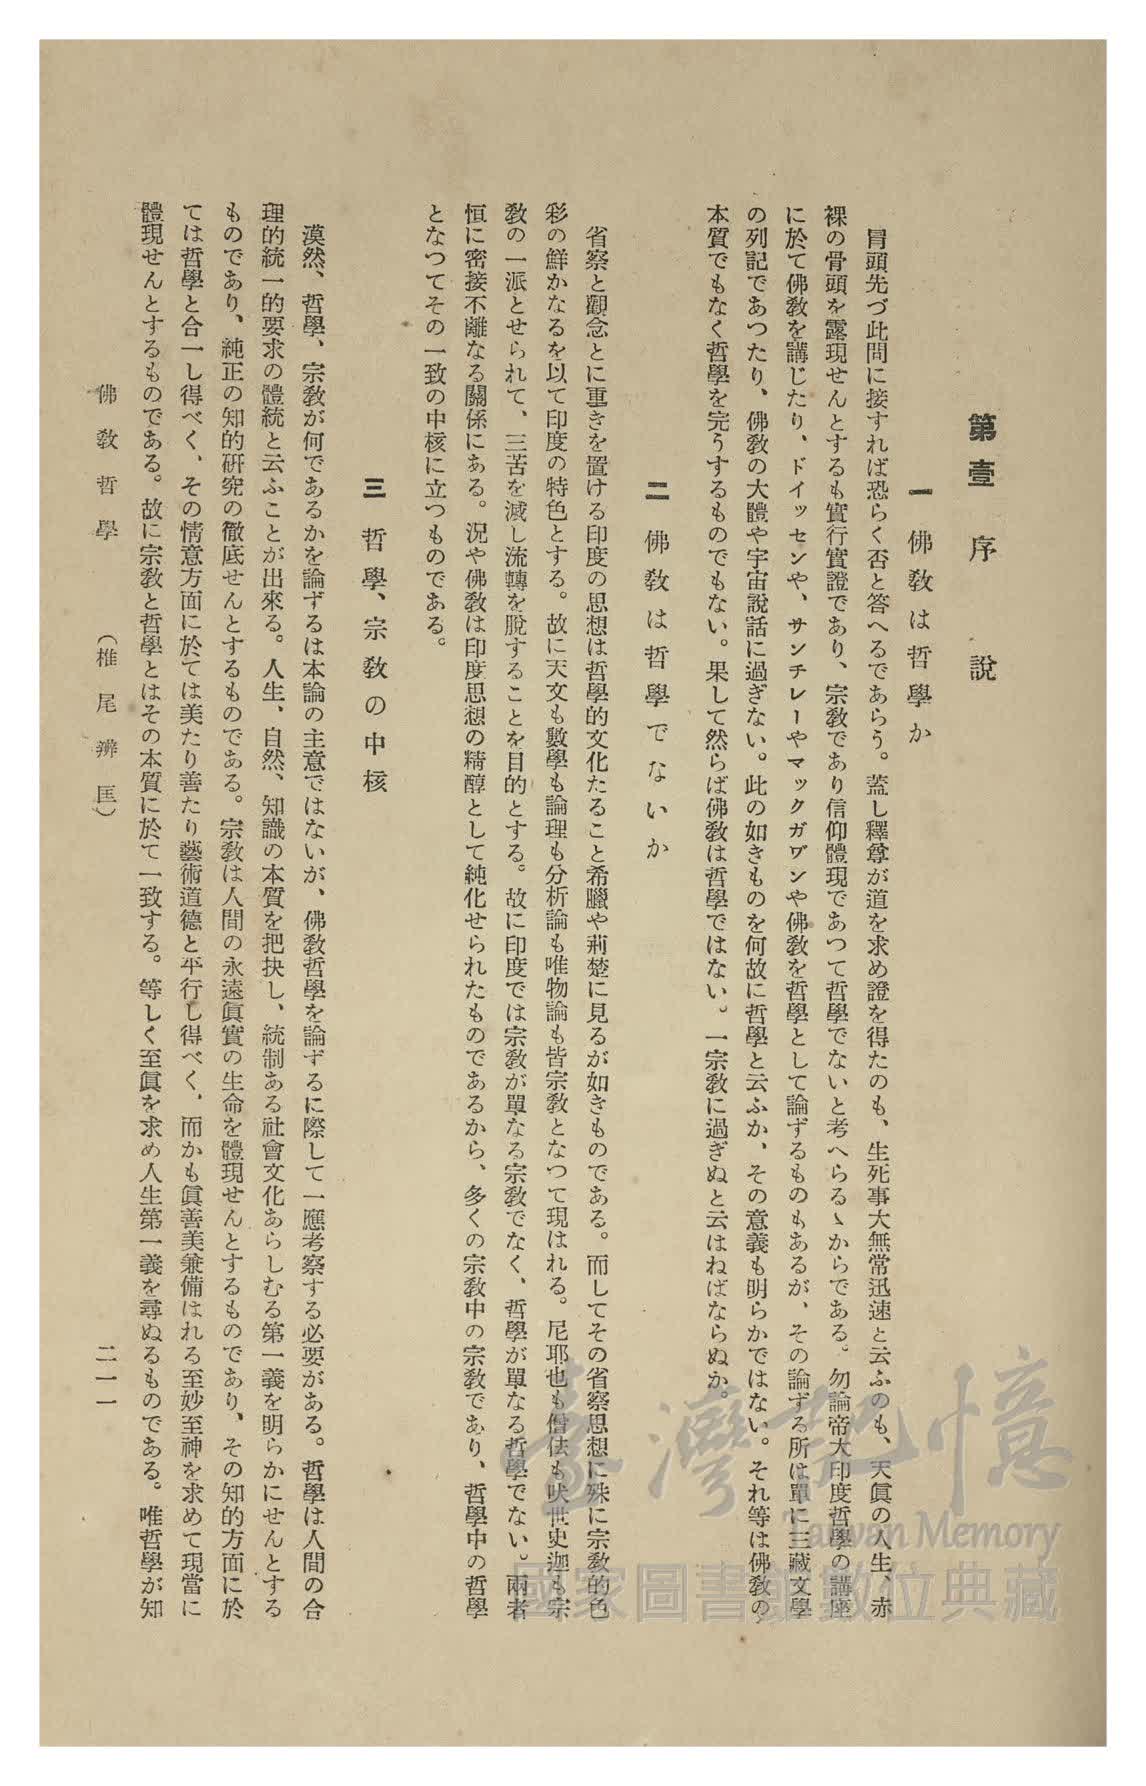 第壹 序說
一 佛教は哲學か
冐頭先づ此問に接すれば恐らく否と答へるであらう。蓋し釋尊が道を求め證を得たのも、生死事大無常迅速と云ふのも、天眞の人生、赤
裸の骨頭を露現せんとするも實行實證であり、宗教であり信仰體現であつて哲學でないと考へらるゝからである。勿論帝大印度哲學の講座
に於て佛教を講じたり、ドイッセンや、サンチレーやマックガヷンや佛教を哲學として論ずるものもあるが、その論ずる所は單に三藏文學
の列記であつたり、佛教の大體や宇宙說話に過ぎない。此の如きものを何故に哲學と云ふか、その意義も明らかではない。それ等は佛教の
本質でもなく哲學を完うするものでもない。果して然らば佛教は哲學ではない。一宗教に過ぎぬと云はねばならぬか。
二 佛教は哲學でないか
省察と觀念とに重きを置ける印度の思想は哲學的文化たること希臘や荊楚に見るが如きものである。而してその省察思想に殊に宗教的色
彩の鮮かなるを以て印度の特色とする。故に天文も數學も論理も分析論も唯物論も皆宗教となつて現はれる。尼耶也も僧佉も吠世史迦も宗
教の一派とせられて、三苦を滅し流轉を脫することを目的とする。故に印度では宗教が單なる宗教でなく、哲學が單なる哲學でない。兩者
恒に密接不離なる關係にある。況や佛教は印度思想の精醇として純化せられたものであるから、多くの宗教中の宗教であり、哲學中の哲學
となつてその一致の中核に立つものである。
三 哲學、宗教の中核
漠然、哲學、宗教が何であるかを論ずるは本論の主意ではないが、佛教哲學を論ずるに際して一應考察する必要がある。哲學は人間の合
理的統一的要求の體統と云ふことが出來る。人生、自然、知識の本質を把抉し、統制ある社會文化あらしむる第一義を明らかにせんとする
ものであり、純正の知的硏究の徹底せんとするものである。宗教は人間の永遠眞實の生命を體現せんとするものであり、その知的方面に於
ては哲學と合一し得べく、その情意方面に於ては美たり善たり藝術道德と平行し得べく、而かも眞善美兼備はれる至妙至神を求めて現當に
體現せんとするものである。故に宗教と哲學とはその本質に於て一致する。等しく至眞を求め人生第一義を尋ぬるものである。唯哲學が知
佛教哲學 （椎尾辨匡） 二一一
臺灣記憶
Taiwan Memory
國家圖書館數位典藏